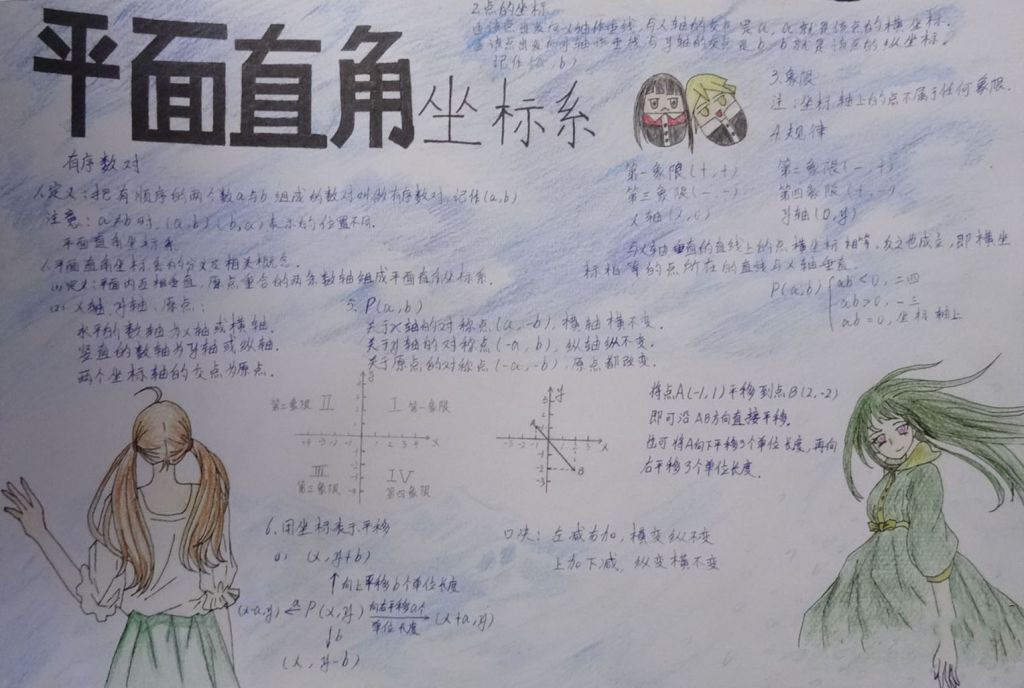 平面直角坐标系
有序数对
1.定义:把有顺序的两个数a与b组成的数对叫做有序数对,记作(a,b)
注意:a≠b时,(a,b)(b,a)表示的位置不同.
平面直角坐标系
1.平面直角坐标系的定义及相关概念.
(1)定义:平面内互相垂直,原点重合的两条数轴组成平面直角坐标系.
(2) x轴,y轴,原点:
水平的数轴为x轴或横轴.
竖直的数轴为y轴或纵轴.
两个坐标轴的交点为原点.
2.点的坐标
记作(a,b)
3.象限
注:坐标轴上的点不属于任何象限.
4.规律
第一象限(+,+) 第二象限(-,+)
第三象限(-,-) 第四象限(+,-)
x轴(x,0) y轴(0,y)
与x轴垂直的直线上的点横坐标相等,反之也成立,即横坐
标相等的点所在的直线与x轴垂直.
P(a,b) ab<0,二四
ab>0,一三
ab=0,坐标轴上
5. P(a,b)
关于x轴的对称点(a,-b),横轴横不变.
关于y轴的对称点(-a,b),纵轴纵不变.
关于原点的对称点(-a,-b),原点都改变.
第二象限 II I 第一象限
x
III IV
第三象限 第四象限
y
x
B
将点A(-1,1)平移到点B(2,-2)
即可沿AB方向直接平移.
也可将A向下平移3个单位长度,再向
右平移3个单位长度.
6.用坐标表示平移
(1) (x,y+b)
↑向上平移b个单位长度
(x-a,y) ←a P(x,y) 向右平移a个单位长度→ (x+a,y)
↓b
(x,y-b)
口决:左减右加,横变纵不变
上加下减,纵变横不变